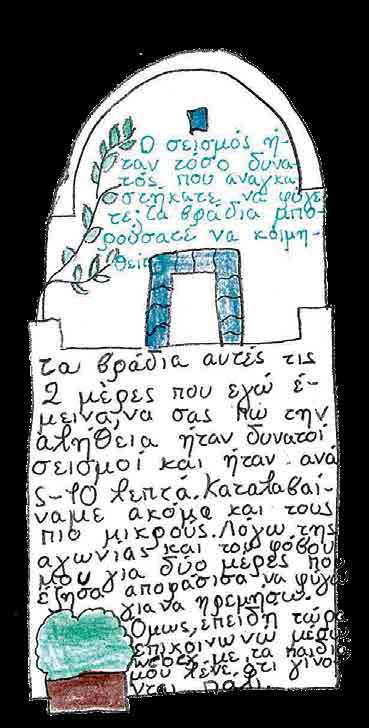 Ο σεισμός ή-
ταν τόσο δυνα
τός που αναγκα
στήκατε να φύγε
τε; τα βράδια μπο-
ρούσατε να κοιμη-
θείτε;
τα βράδια αυτές τις
2 μέρες που εγώ έ-
μεινα, να σας πω την
αλήθεια ήταν δυνατοί
σεισμοί και ήταν ανά
5-10 λεπτά. Καταλαβαί-
ναμε ακόμα και τους
πιο μικρούς. Λόγω της
αγωνίας και του φόβου
μου για δύο μέρες που
έζησα αποφάσισα να φύγω
για να ηρεμήσω.
Όμως, επειδή τώρα
επικοινωνώ μέσω
webex με τα παιδιά
μου λένε ότι γίνο-
νται πάλι.